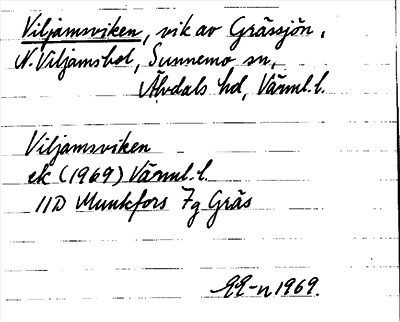 Viljamsviken, vik av Grässjön,
N. Viljamshol, Sunnemo sn,
Älvdals hd, Värml. l.
Viljamsviken
ek (1969) Värml. l.
11D Munkfors 7g Gräs
1969.